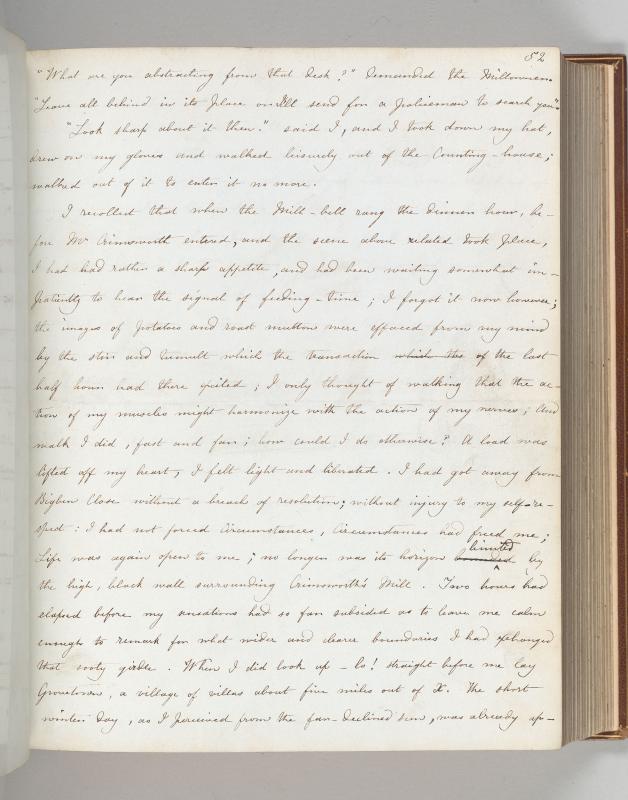 52
"What are you abstracting from that desk?" demanded the Millowner.
"Leave all behind in its place or I'll send for a policeman to search you".
"Look sharp about it then." said I, and I took down my hat,
drew on my gloves and walked leisurely out of the Counting-house;
walked out of it to enter it no more.
I recollect that when the Mill-bell rang the dinner hour, be-
fore Mr Crimsworth entered, and the scene above related took place,
I had had rather a sharp appetite, and had been waiting somewhat im-
patiently to hear the signal of feeding-time; I forgot it now however;
the images of potatoes and roast mutton were effaced from my mind
by the stir and tumult which the transaction which the of the last
half hour had there excited; I only thought of walking that the ac-
tion of my muscles might harmonize with the action of my nerves; and
walk I did, fast and far; how could I do otherwise? A load was
lifted off my heart, I felt light and liberated. I had got away from
Bigben Close without a breach of resolution; without injury to my self-re-
spect: I had not forced Circumstances, Circumstances had freed me;
Life was again open to me; no longer was its horizon limited by
the high, black wall surrounding Crimsworth's Mill. Two hours had
elapsed before my sensations had so far subsided as to leave me calm
enough to remark for what wider and clearer boundaries I had exchanged
that sooty girdle. When I did look up - lo! straight before me lay
Grovetown, a village of villas about five miles out of X. The short
winter day, as I perceived from the far-declined sun, was already ap-